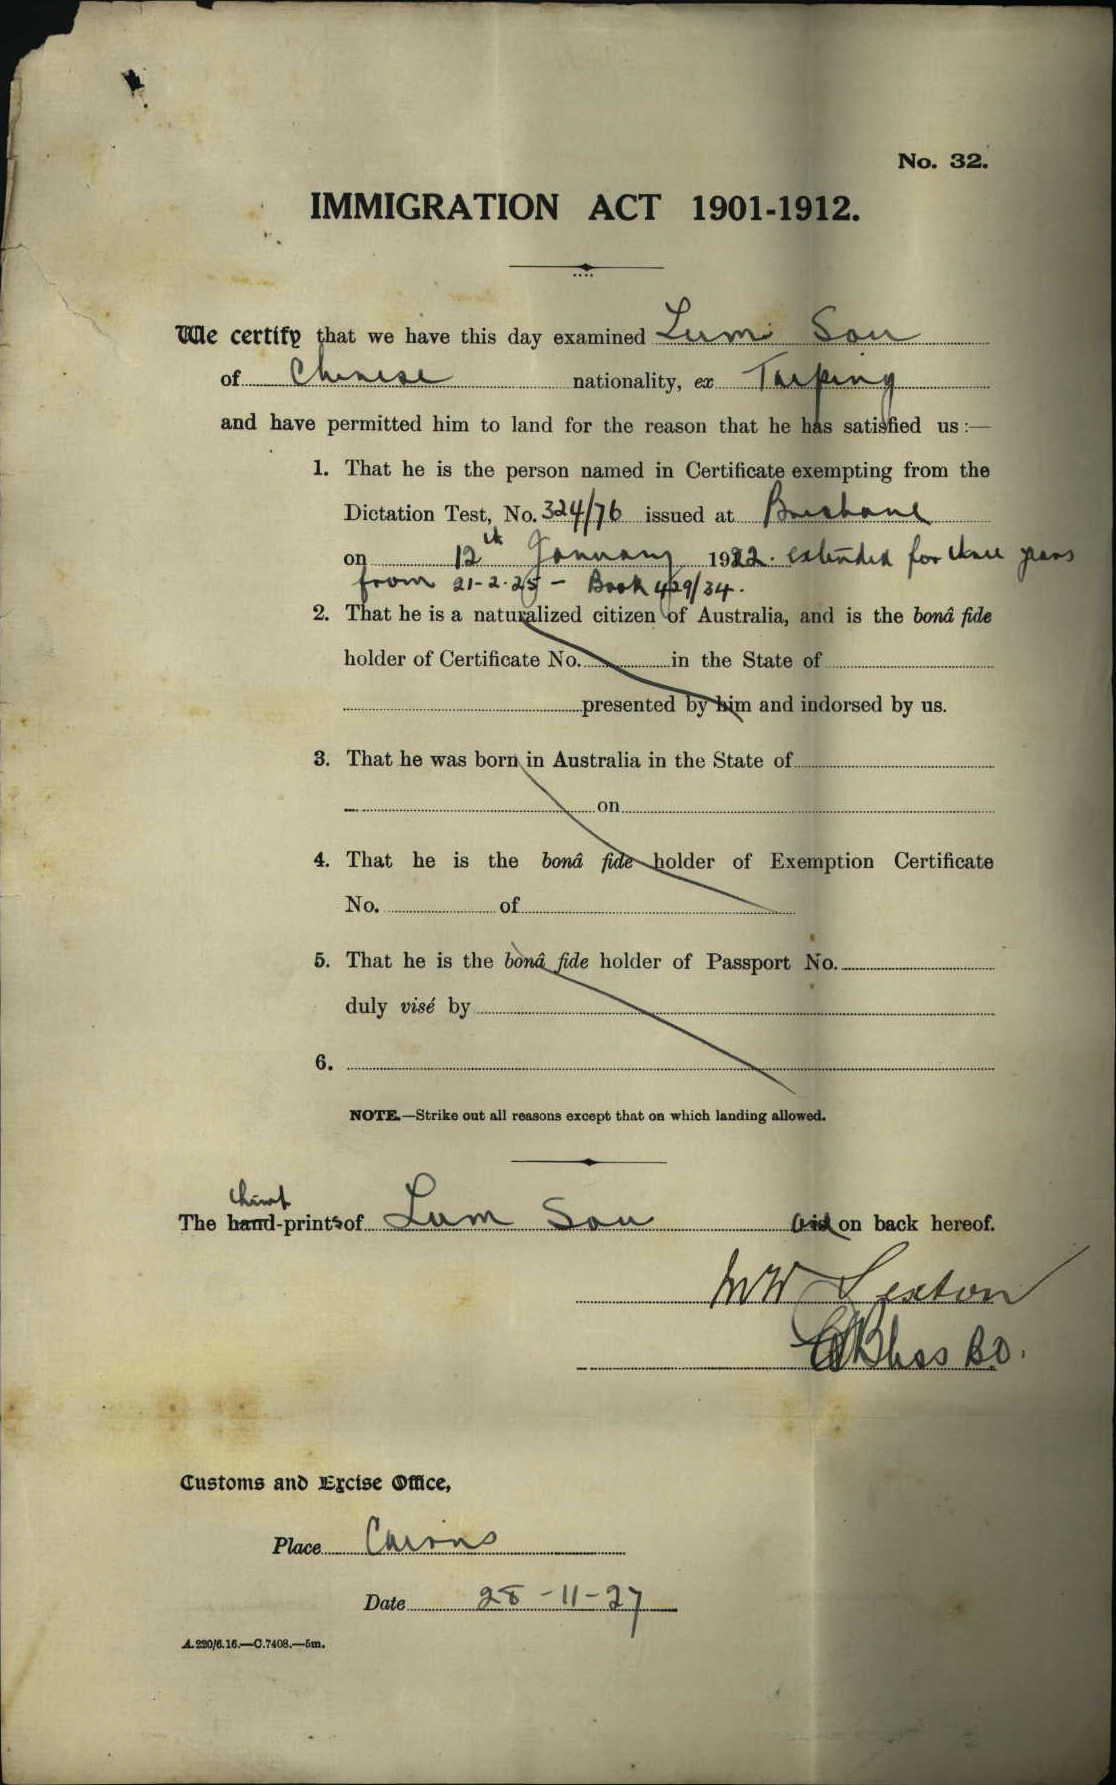 No. 32.
IMMIGRATION ACT 1901-1912.
We certify that we have this day examined Lum Sou
of Chinese nationality, ex Taiping
and have permitted him to land for the reason that he has satisfied us :—
1. That he is the person named in Certificate exempting from the
Dictation Test, No. 324/76 issued at Brisbane
on 12th January 1922. extended for three years
from 21-2-25 — Book 429/34.
2. That he is a naturalized citizen of Australia, and is the bonâ fide
holder of Certificate No. in the State of
presented by him and indorsed by us.
3. That he was born in Australia in the State of
on
4. That he is the bonâ fide holder of Exemption Certificate
No. of
5. That he is the bonâ fide holder of Passport No.
duly visé by
6.
NOTE.—Strike out all reasons except that on which landing allowed.
thumb
The hand-prints of Lum Sou on back hereof.
MW Sexton
Bliss BO.
Customs and Excise Office,
Place Cairns
Date 28-11-27
A.220/6.16.—C.7408.—5m.